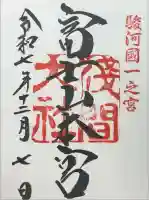 駿河國一之宮
富士山本宮
浅間大社
令和七年十二月七日